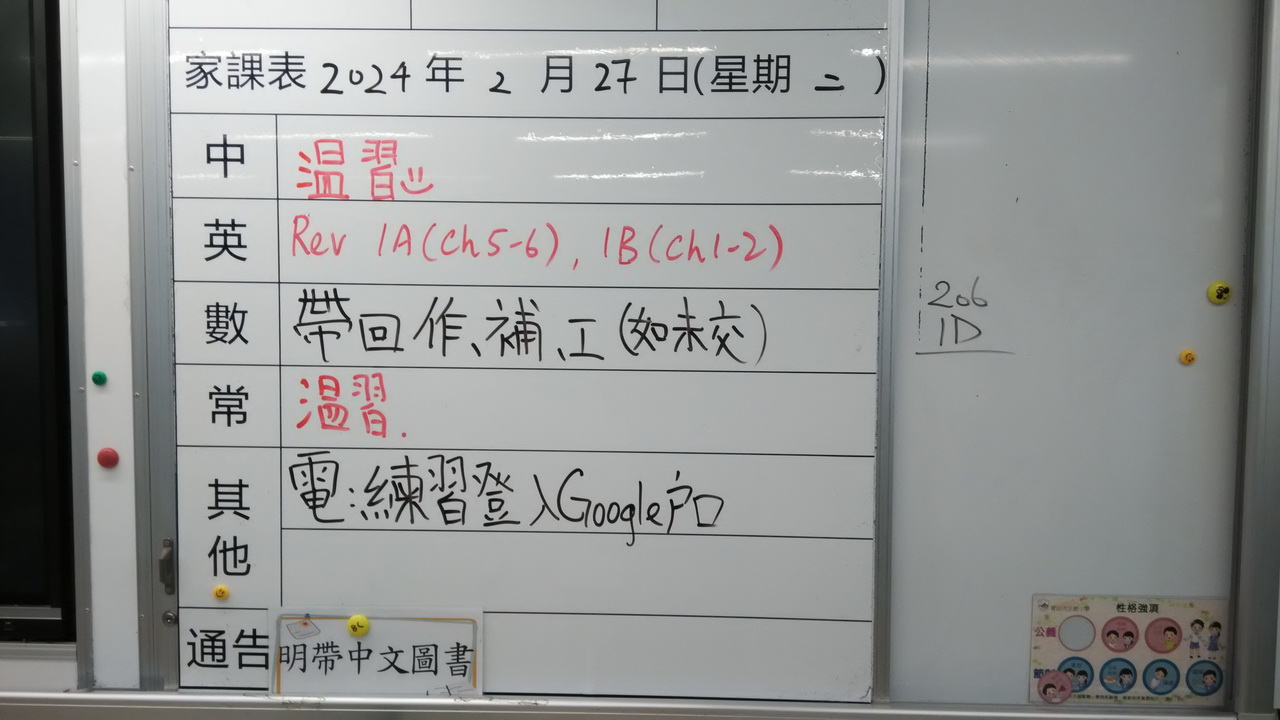 家課表 2024 年 2 月 27 日(星期 二 )
中 温習
英 Rev 1A(Ch5-6), 1B(Ch1-2)
數 帶回作、補、工(如未交)
常 溫習.
其他 電:練習登入Google户口
通告 明帶中文圖書
206
1D
性格強項
公義